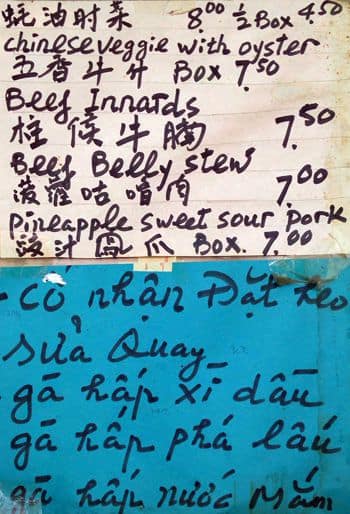 蚝油时菜 8.00 ½ Box 4.50
chinese veggie with oyster
五香牛什 Box 7.50
Beef Innards
柱候牛腩 7.50
Beef Belly stew
菠蘿咕噜肉 7.00
pineapple sweet sour pork
豉汁鳳爪 Box. 7.00
- Có nhận Đặt heo
sữa Quay
- gà hấp xì dầu
gà hấp phá lấu
gà hấp nước mắm